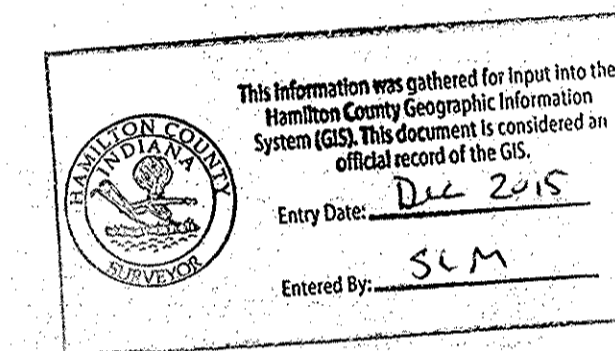 HAMILTON COUNTY
INDIANA
SURVEYOR
This information was gathered for input into the
Hamilton County Geographic Information
System (GIS). This document is considered an
official record of the GIS.
Entry Date: Dec 2015
Entered By: SLM